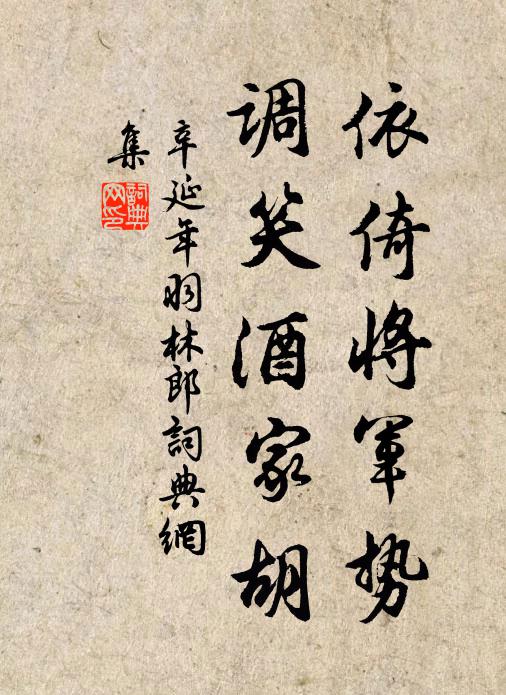 依倚將軍势
调笑酒家胡
辛延年羽林郎詞典網
集
詞典
网印